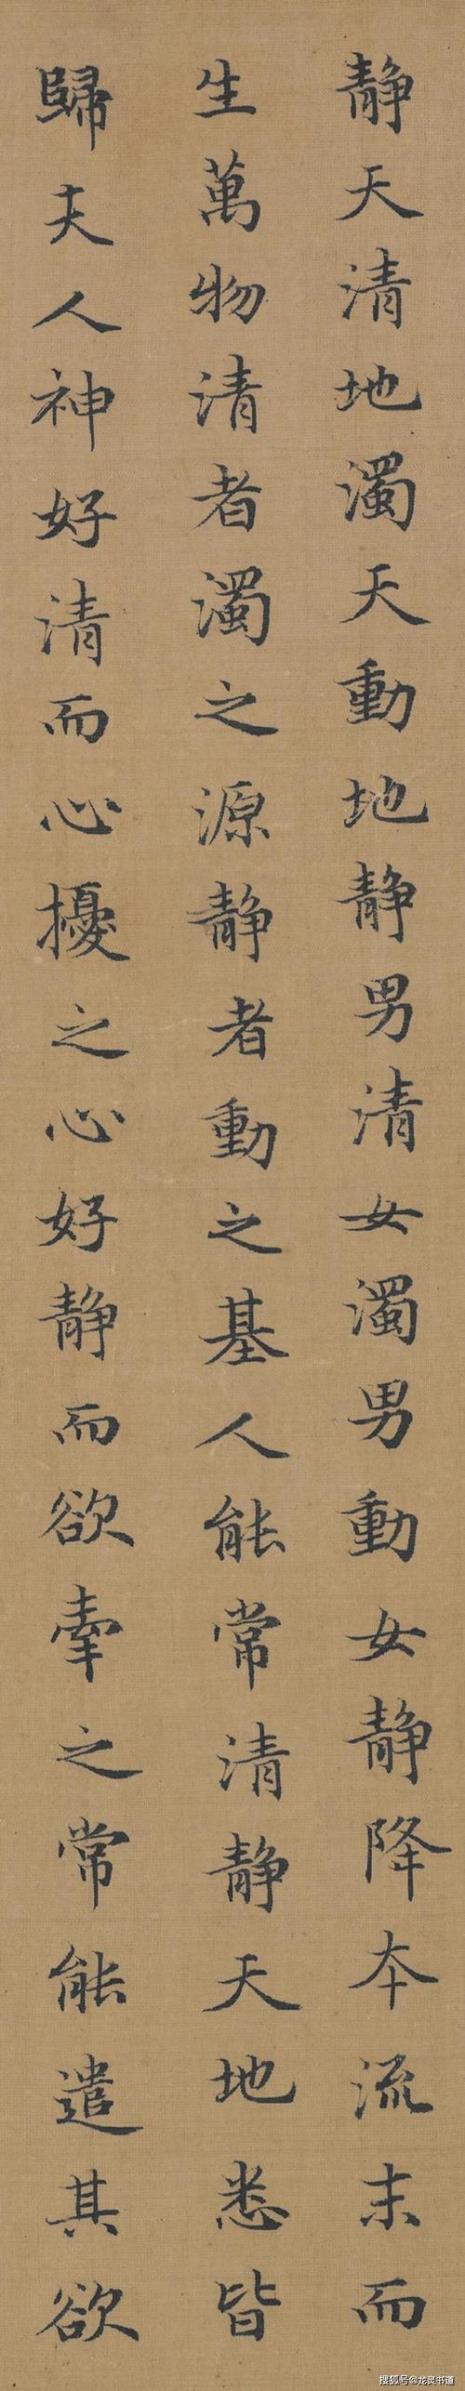 静天清地濁天動地静男清女濁男動女静降夲流末而
生萬物清者濁之源静者動之基人能常清静天地悉皆
歸夫人神好清而心擾之心好静而欲牽之常能遣其欲
搜狐号@龙良书道